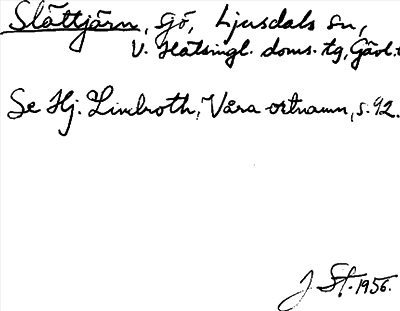 Slåttjärn, sjö, Ljusdals sn,
V. Hälsingl. doms. tg, Gävl.
Se Hj. Lindroth, Våra ortnamn, s. 92.
J St. 1956.